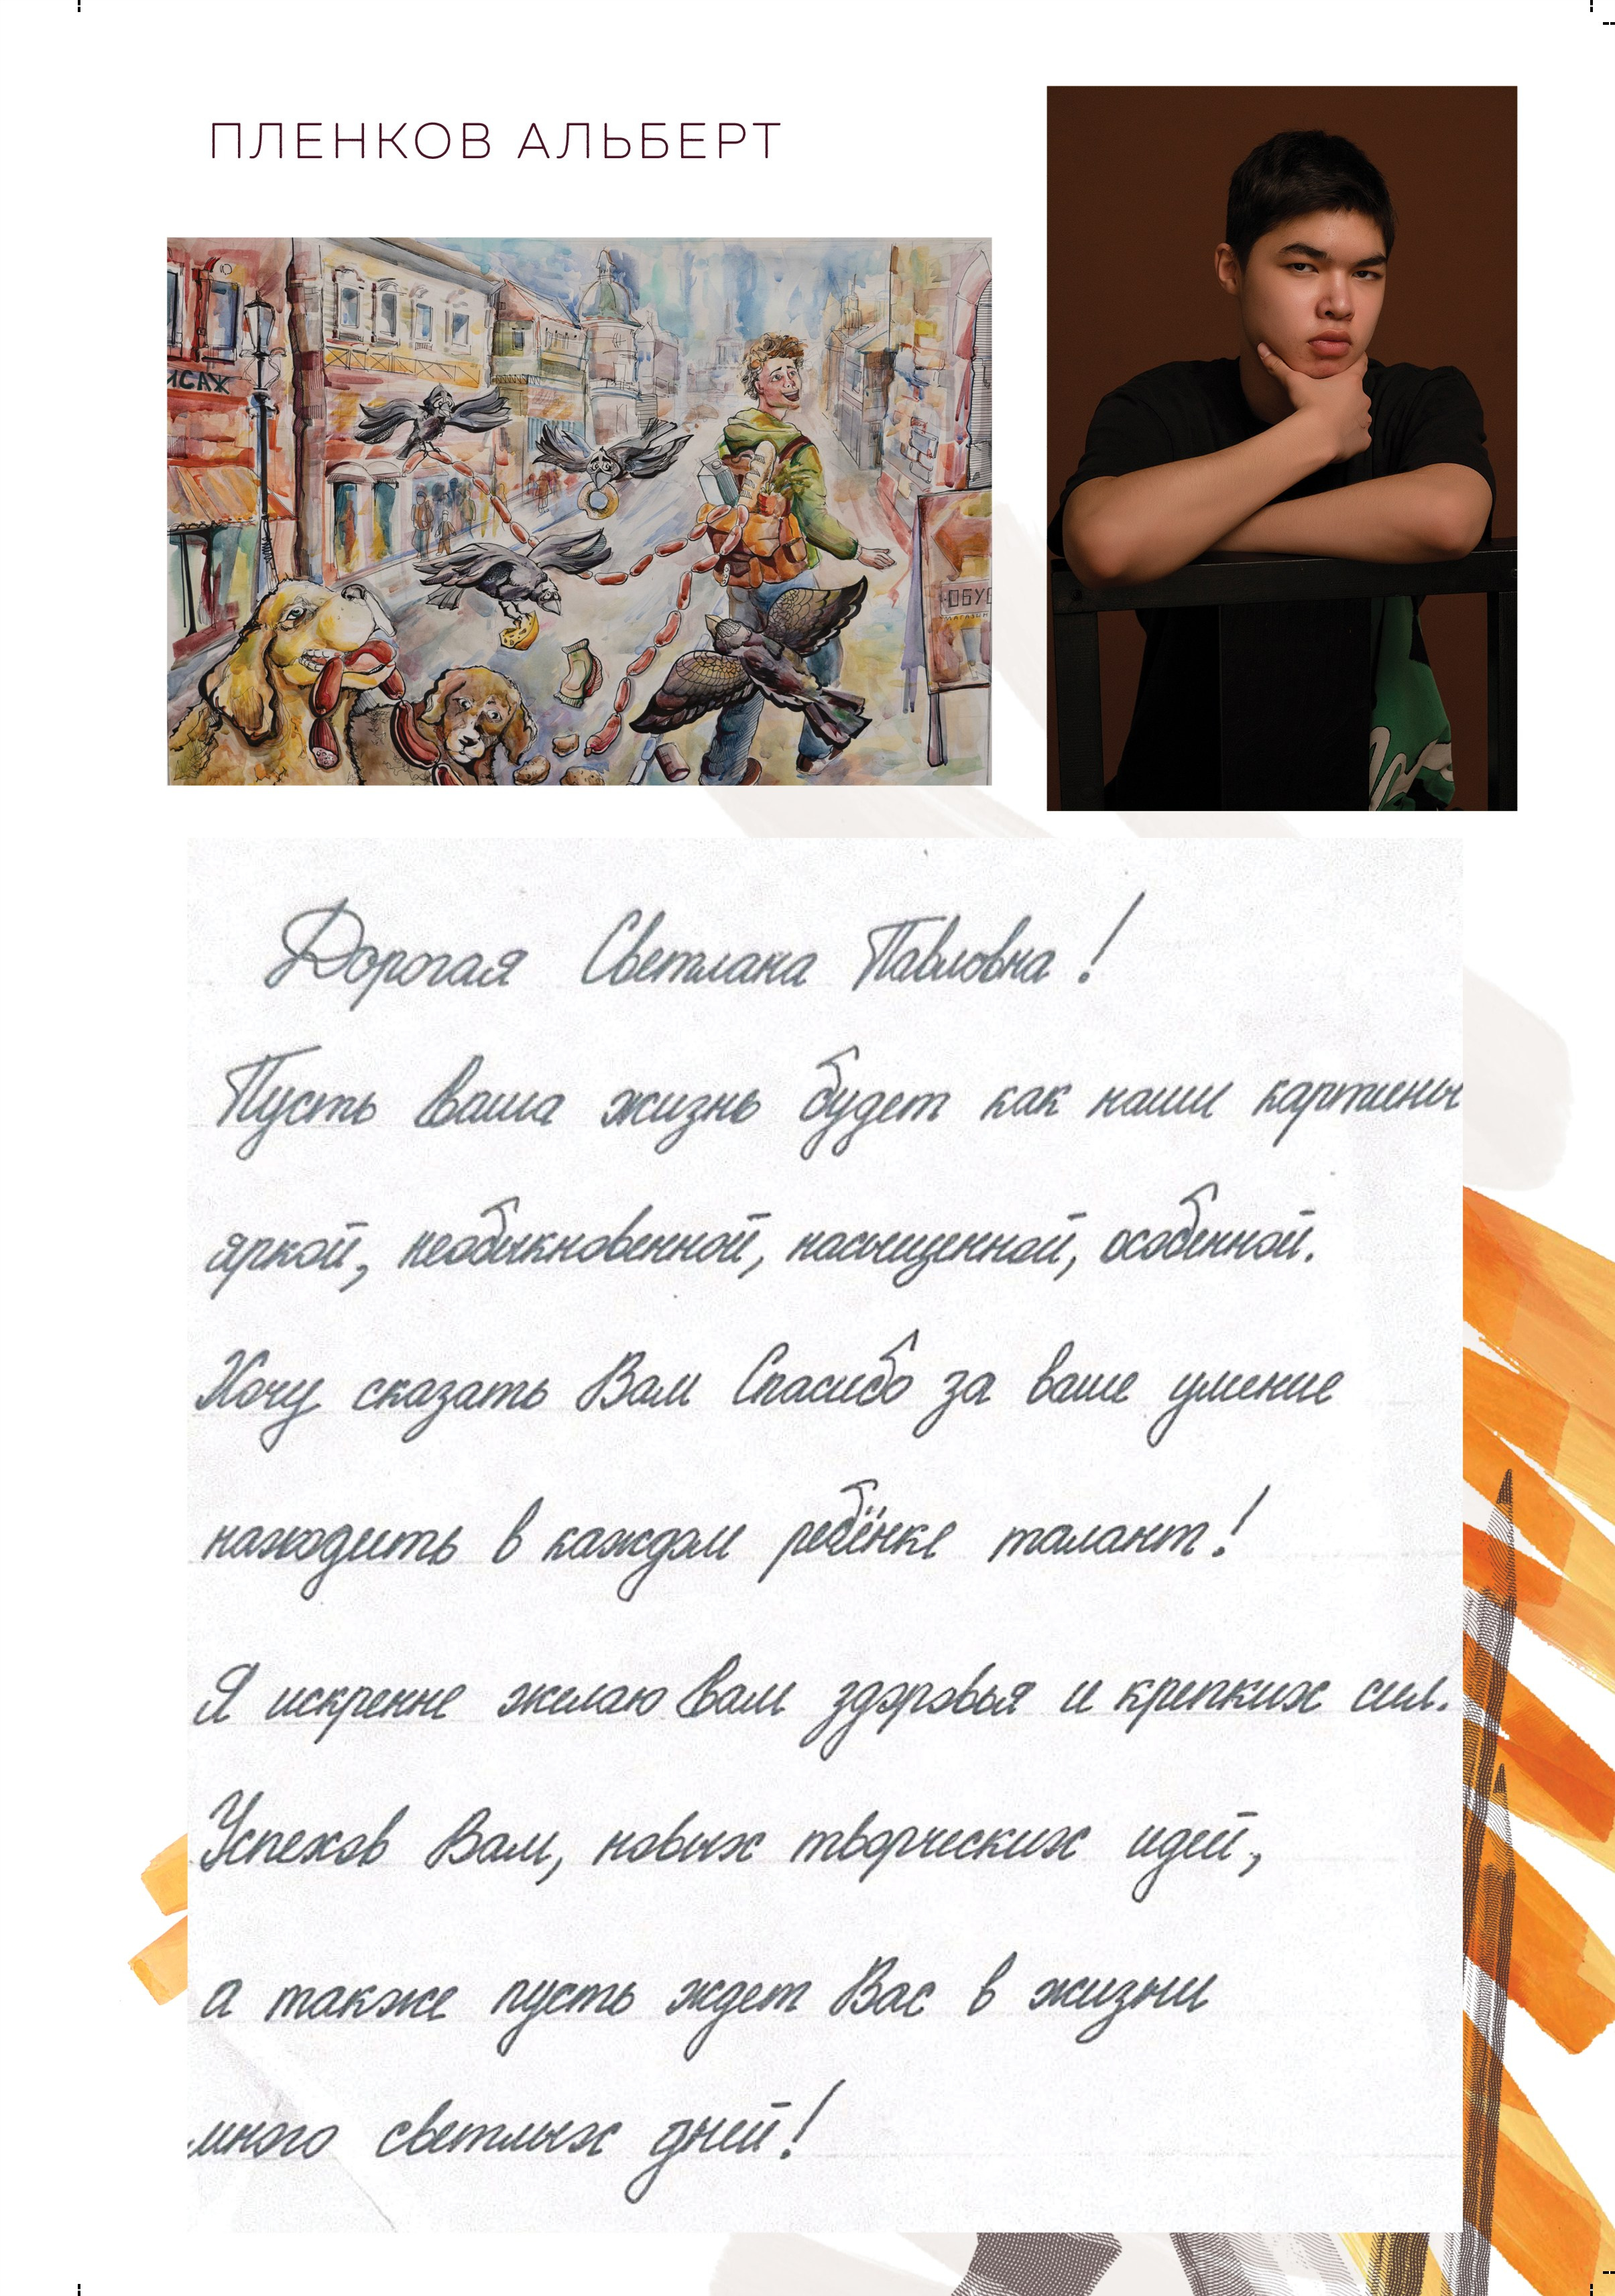 ПЛЕНКОВ АЛЬБЕРТ
ИСАЖ
ОБУС
МАГАЗИН
Дорогая Светлана Павловна!
Пусть ваша жизнь будет как наши картины
яркой, необыкновенной, насыщенной, особенной.
Хочу сказать Вам Спасибо за ваше умение
находить в каждом ребёнке талант!
Я искренне желаю Вам здоровья и крепких сил.
Успехов Вам, новых творческих идей,
а также пусть ждет Вас в жизни
много светлых дней!